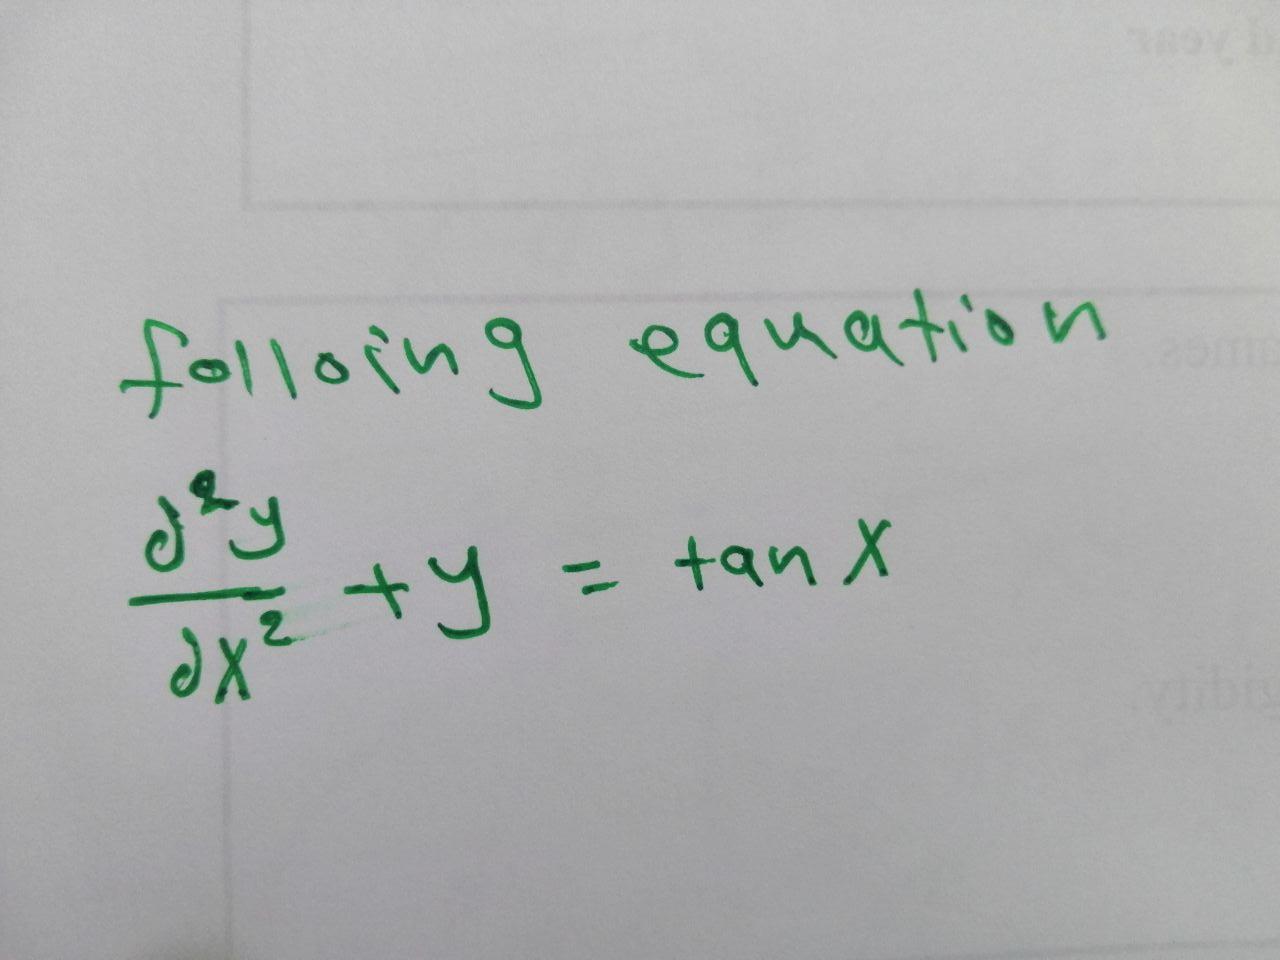 folloing equation
d²y/dx² + y = tan x